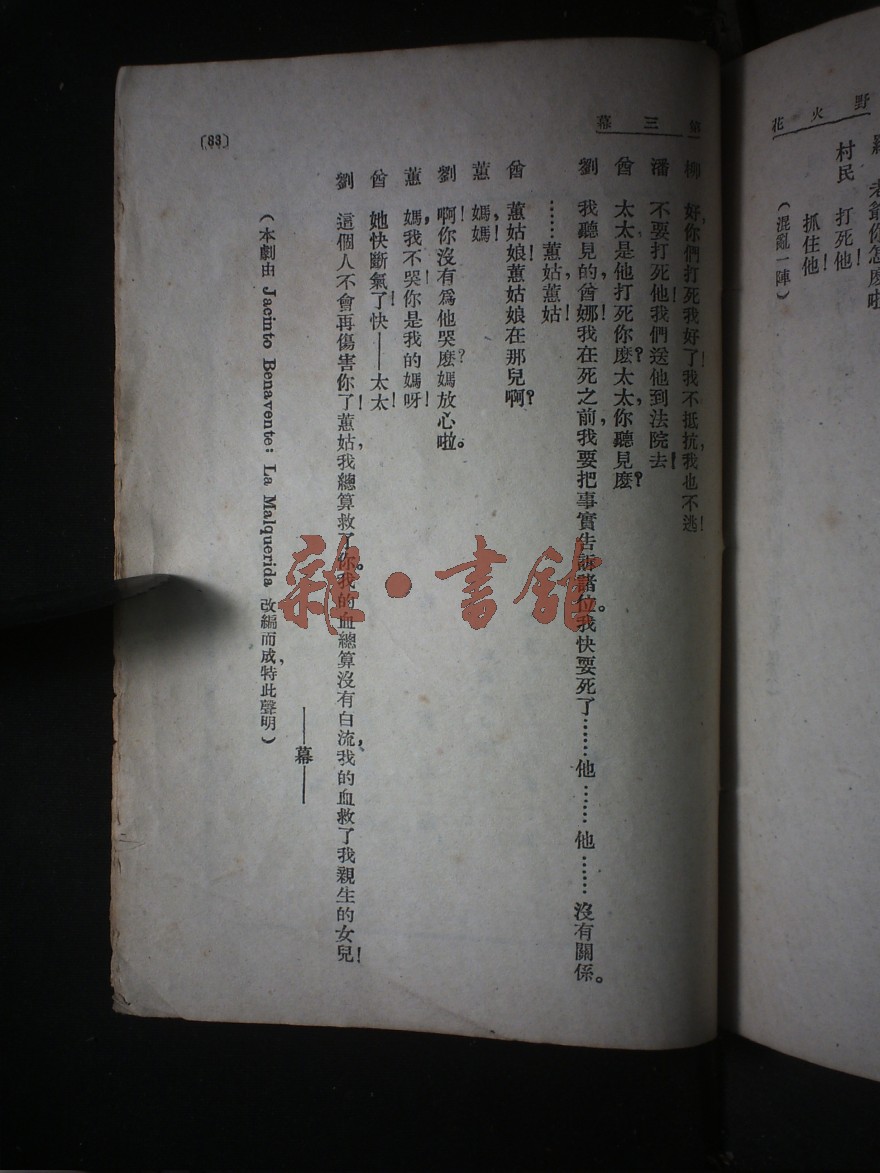 野火花
老爺你怎麼啦
村民　打死他！
抓住他！
（混亂一陣）
第三幕
柳　好，你們打死我好了！我不抵抗，我也不逃！
潘　不要打死他！我們送他到法院去！
曾　太太是他打死你麼？太太，你聽見麼？
劉　我聽見的，曾娜！我在死之前，我要把事實告訴諸位。我快要死了……他……他……沒有關係。
……蕙姑，蕙姑！
曾　蕙姑娘！蕙姑娘在那兒啊？
蕙　媽，媽！
劉　啊！你沒有爲他哭麼？媽放心啦。
蕙　媽，我不哭！你是我的媽呀！
曾　她快斷氣了！快——太太！
劉　這個人不會再傷害你了！蕙姑，我總算救了你。我的血總算沒有白流，我的血救了我親生的女兒！
——幕——
（本劇由 Jacinto Benavente: La Malquerida 改編而成，特此聲明）
(83)
雜·書館